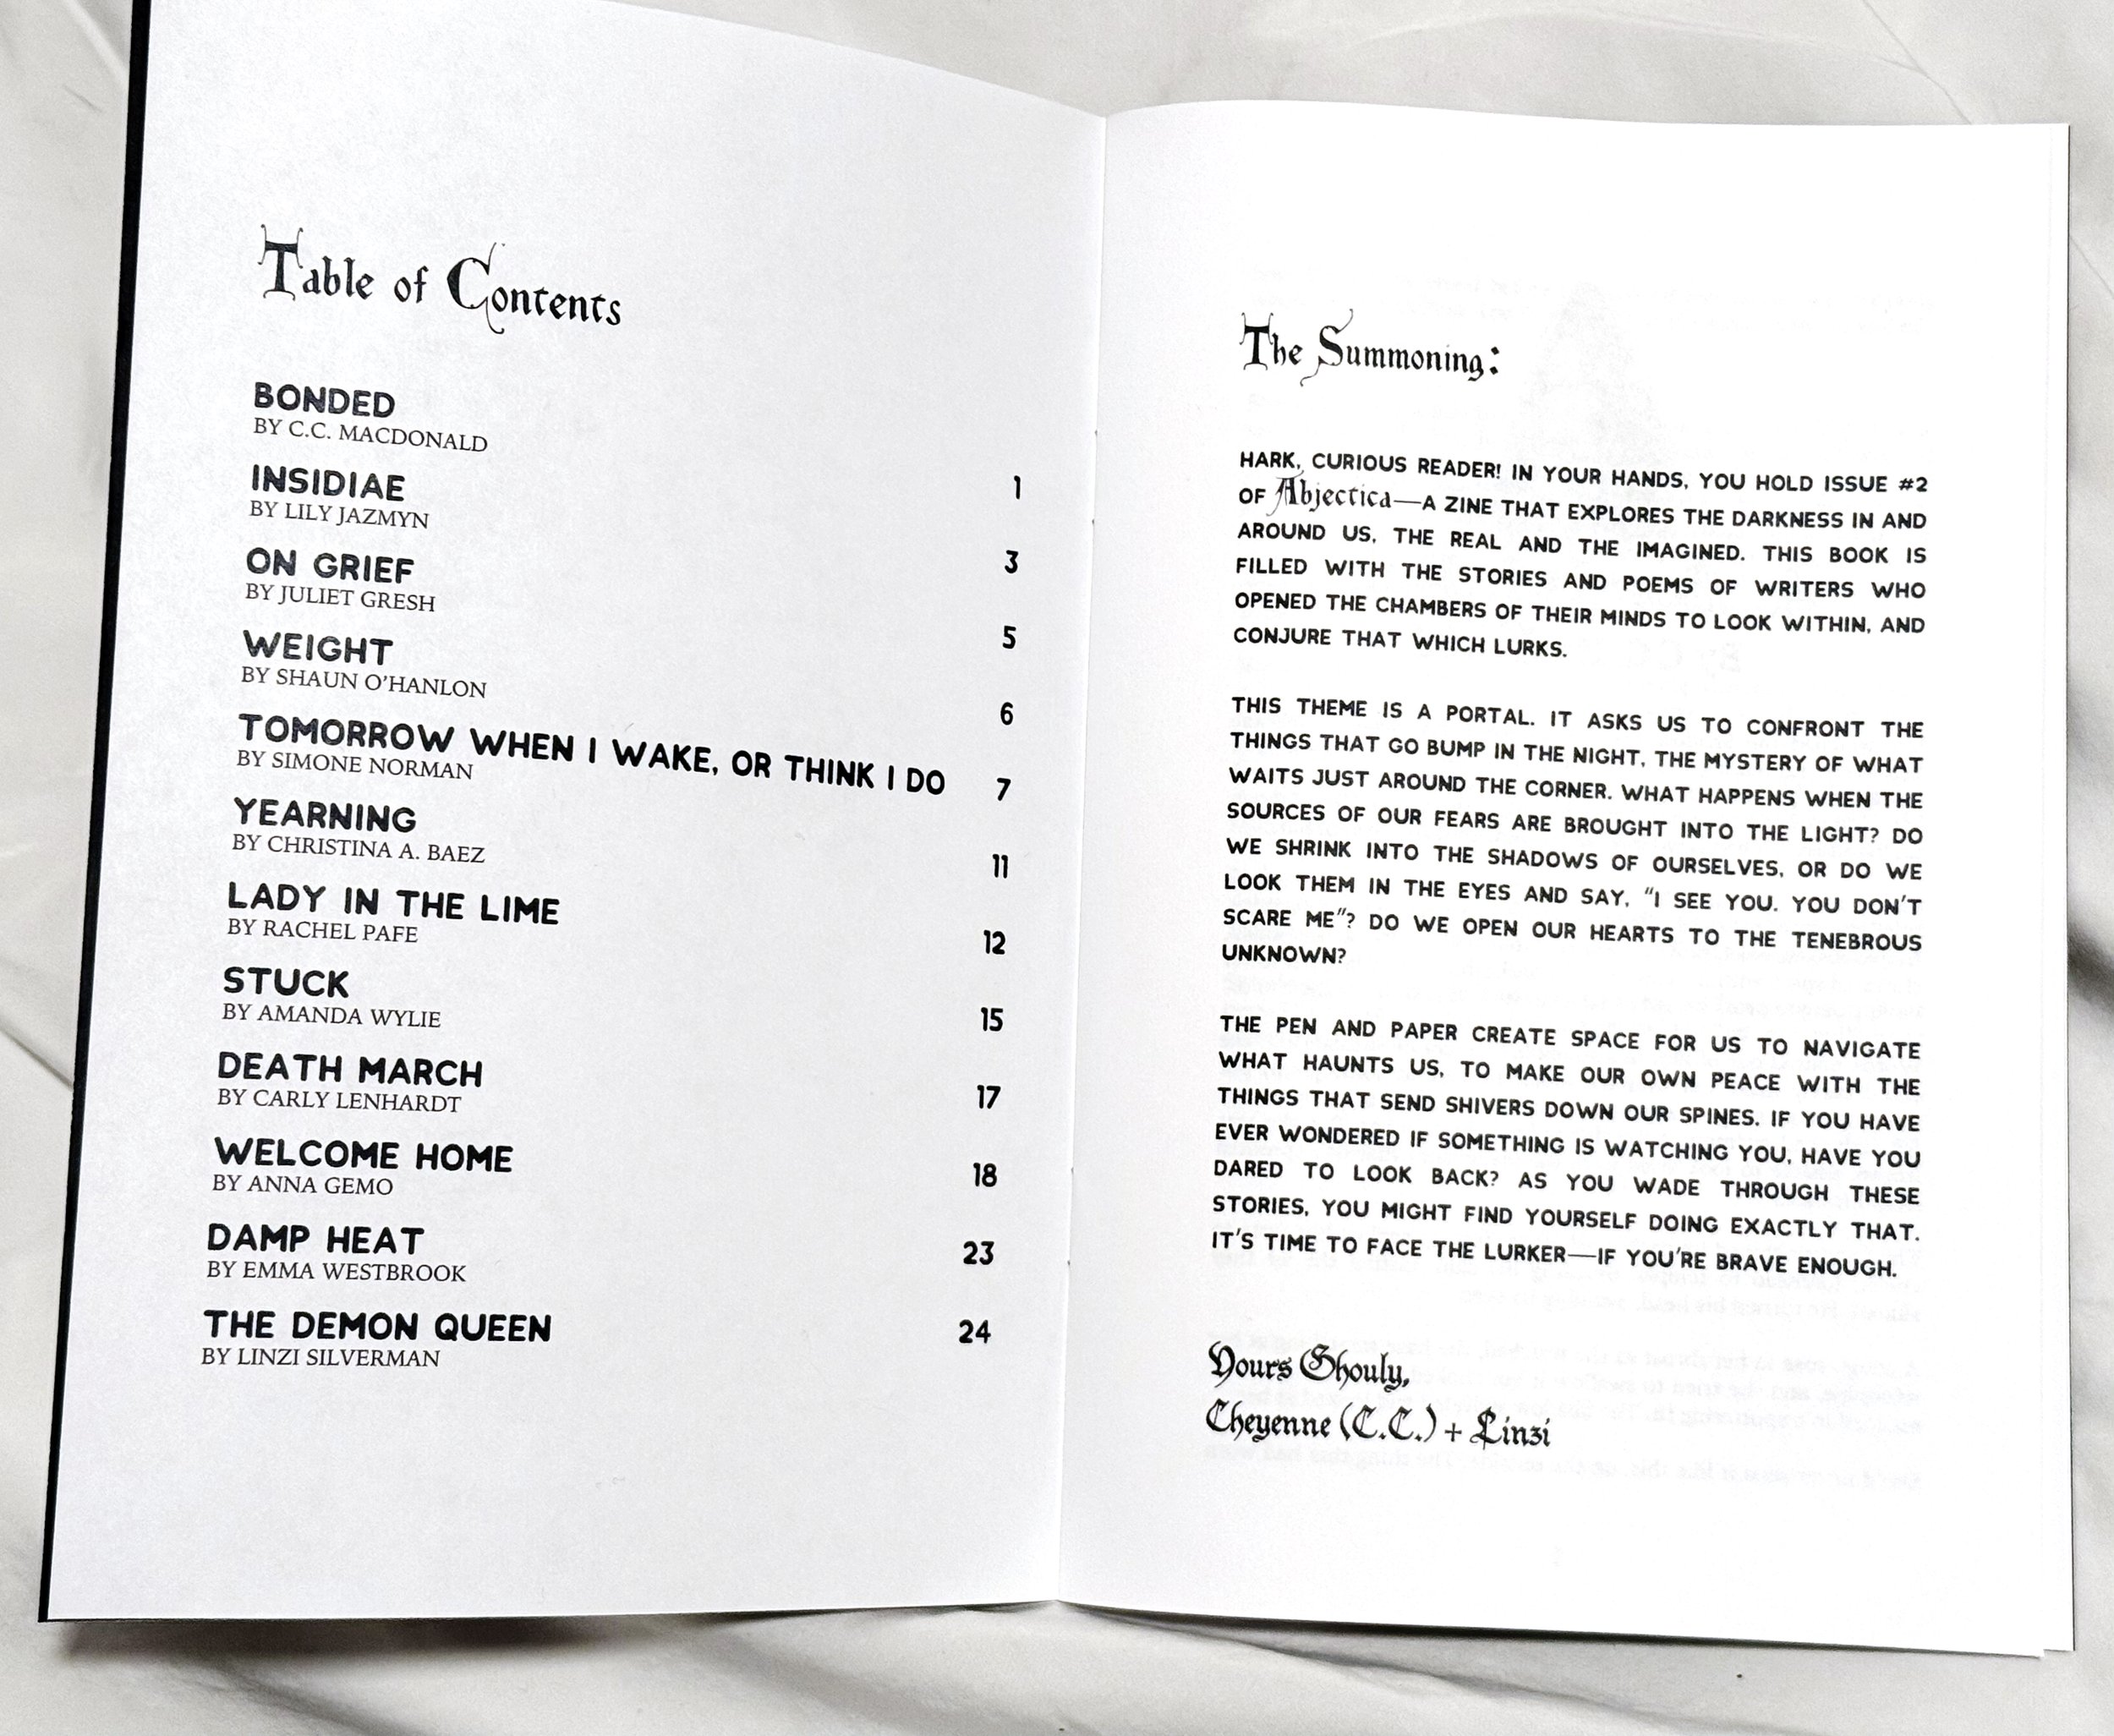 Table of Contents
BONDED
BY C.C. MACDONALD
1
INSIDIAE
BY LILY JAZMYN
3
ON GRIEF
BY JULIET GRESH
5
WEIGHT
BY SHAUN O'HANLON
6
TOMORROW WHEN I WAKE, OR THINK I DO
BY SIMONE NORMAN
7
YEARNING
BY CHRISTINA A. BAEZ
11
LADY IN THE LIME
BY RACHEL PAFE
12
STUCK
BY AMANDA WYLIE
15
DEATH MARCH
BY CARLY LENHARDT
17
WELCOME HOME
BY ANNA GEMO
18
DAMP HEAT
BY EMMA WESTBROOK
23
THE DEMON QUEEN
BY LINZI SILVERMAN
24
The Summoning:
HARK, CURIOUS READER! IN YOUR HANDS, YOU HOLD ISSUE #2
OF Abjectica—A ZINE THAT EXPLORES THE DARKNESS IN AND
AROUND US, THE REAL AND THE IMAGINED. THIS BOOK IS
FILLED WITH THE STORIES AND POEMS OF WRITERS WHO
OPENED THE CHAMBERS OF THEIR MINDS TO LOOK WITHIN, AND
CONJURE THAT WHICH LURKS.
THIS THEME IS A PORTAL. IT ASKS US TO CONFRONT THE
THINGS THAT GO BUMP IN THE NIGHT, THE MYSTERY OF WHAT
WAITS JUST AROUND THE CORNER. WHAT HAPPENS WHEN THE
SOURCES OF OUR FEARS ARE BROUGHT INTO THE LIGHT? DO
WE SHRINK INTO THE SHADOWS OF OURSELVES, OR DO WE
LOOK THEM IN THE EYES AND SAY, "I SEE YOU. YOU DON'T
SCARE ME"? DO WE OPEN OUR HEARTS TO THE TENEBROUS
UNKNOWN?
THE PEN AND PAPER CREATE SPACE FOR US TO NAVIGATE
WHAT HAUNTS US, TO MAKE OUR OWN PEACE WITH THE
THINGS THAT SEND SHIVERS DOWN OUR SPINES. IF YOU HAVE
EVER WONDERED IF SOMETHING IS WATCHING YOU, HAVE YOU
DARED TO LOOK BACK? AS YOU WADE THROUGH THESE
STORIES, YOU MIGHT FIND YOURSELF DOING EXACTLY THAT.
IT'S TIME TO FACE THE LURKER—IF YOU'RE BRAVE ENOUGH.
Yours Ghouly,
Cheyenne (C.C.) + Linzi